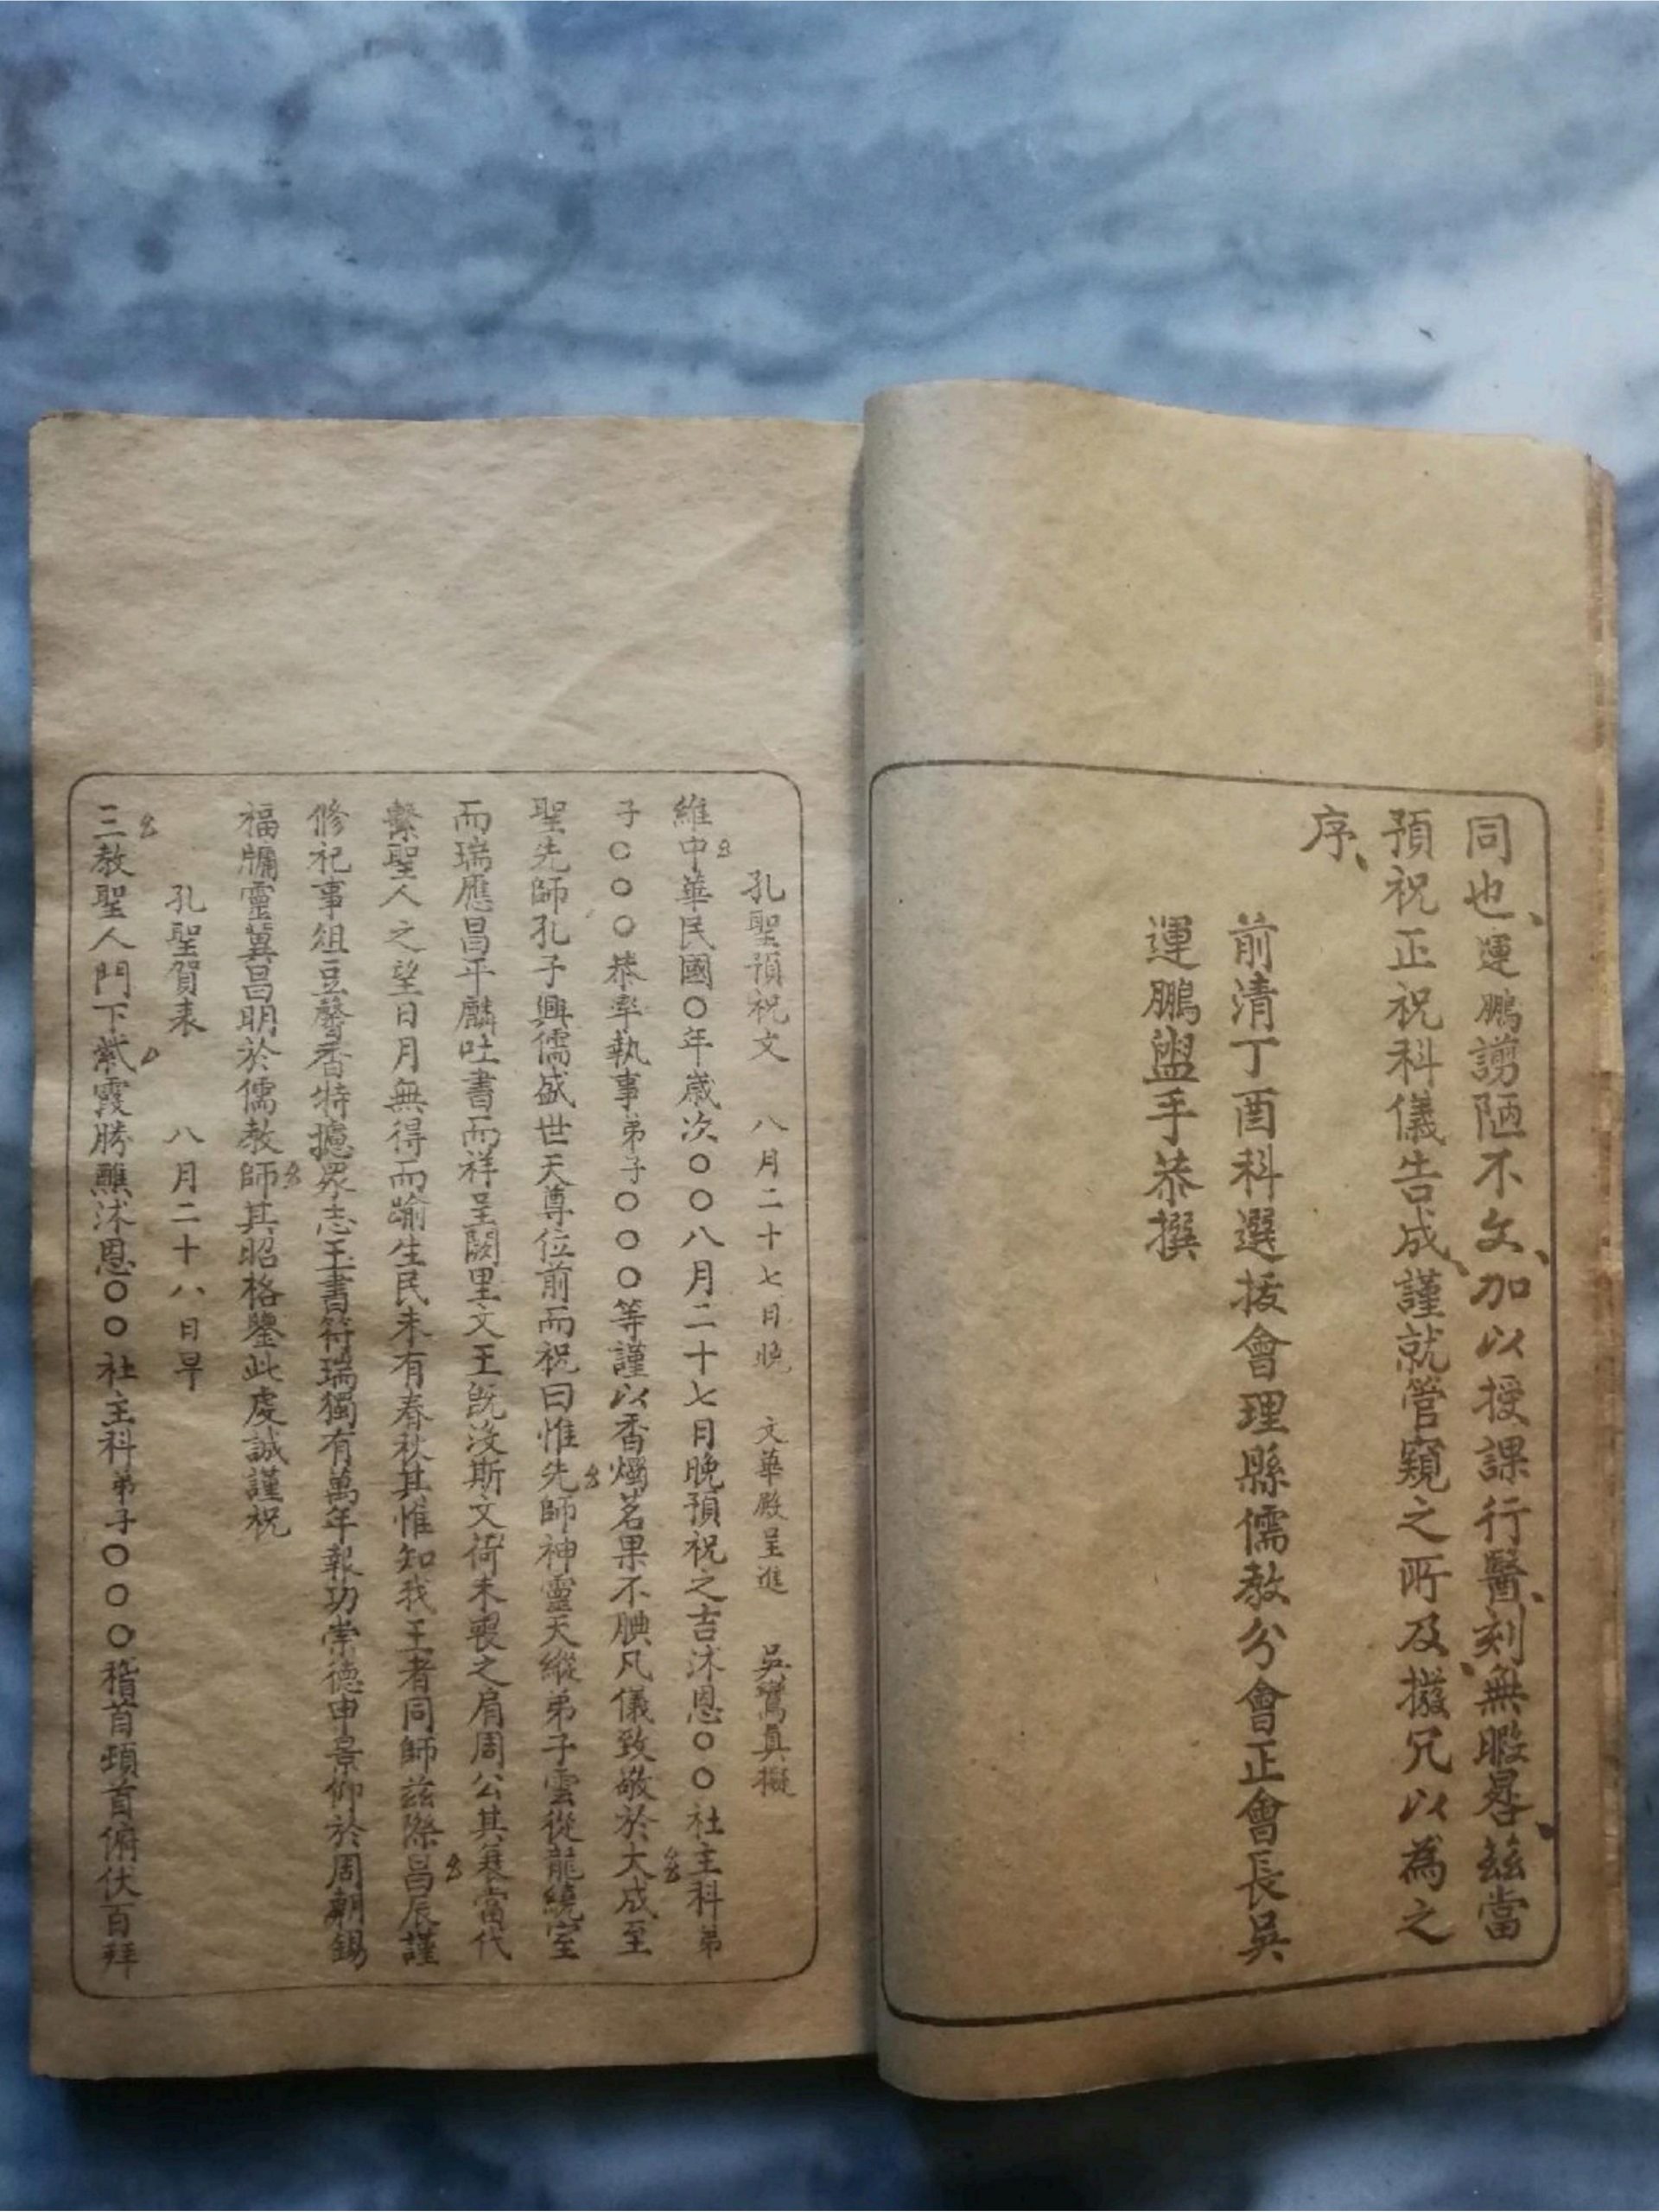 同也、運鵬譾陋不文、加以授課行醫、刻無暇晷、茲當
預祝正祝科儀告成、謹就管窺之所及、援兄以為之
序、
前清丁酉科選拔會理縣儒教分會正會長吳
運鵬盥手恭撰
孔聖預祝文 八月二十七日晚 文華殿呈進 吳鸞真擬
維中華民國〇年歲次〇〇八月二十七月晚預祝之吉沐恩〇〇社主科弟
子〇〇〇恭率執事弟子〇〇〇等謹以香燭茗果不腆凡儀致敬於大成至
聖先師孔子興儒盛世天尊位前而祝曰惟先師神靈天縱弟子雲從龍繞室
而瑞應昌平麟吐書而祥呈闕里文王既沒斯文倚未喪之肩周公其衰當代
繫聖人之望日月無得而踰生民未有春秋其惟知我王者同師茲際昌辰謹
修祀事俎豆馨香特攄眾志玉書符瑞獨有萬年報功崇德申景仰於周朝錫
福牖靈冀昌明於儒教師其昭格鑒此虔誠謹祝
孔聖賀表 八月二十八日早
三教聖人門下紫霞勝醮沐恩〇〇社主科弟子〇〇〇稽首頓首俯伏百拜